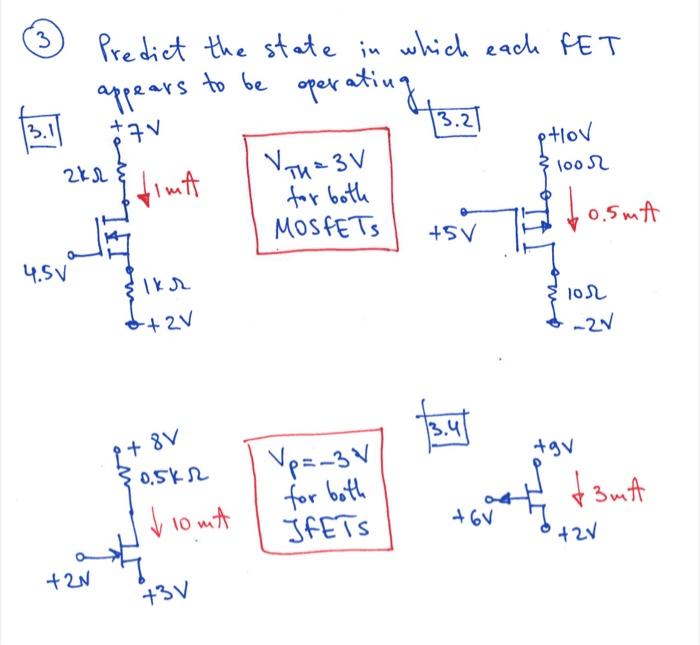 3 Predict the state in which each FET
appears to be operating
3.1
+7V
2kΩ
1mA
4.5V
1kΩ
+2V
VTH = 3V
for both
MOSFETs
3.2
+10V
100Ω
0.5mA
+5V
10Ω
-2V
+8V
0.5kΩ
10mA
+2V
+3V
Vp = -3V
for both
JFETs
3.4
+9V
3mA
+6V
+2V